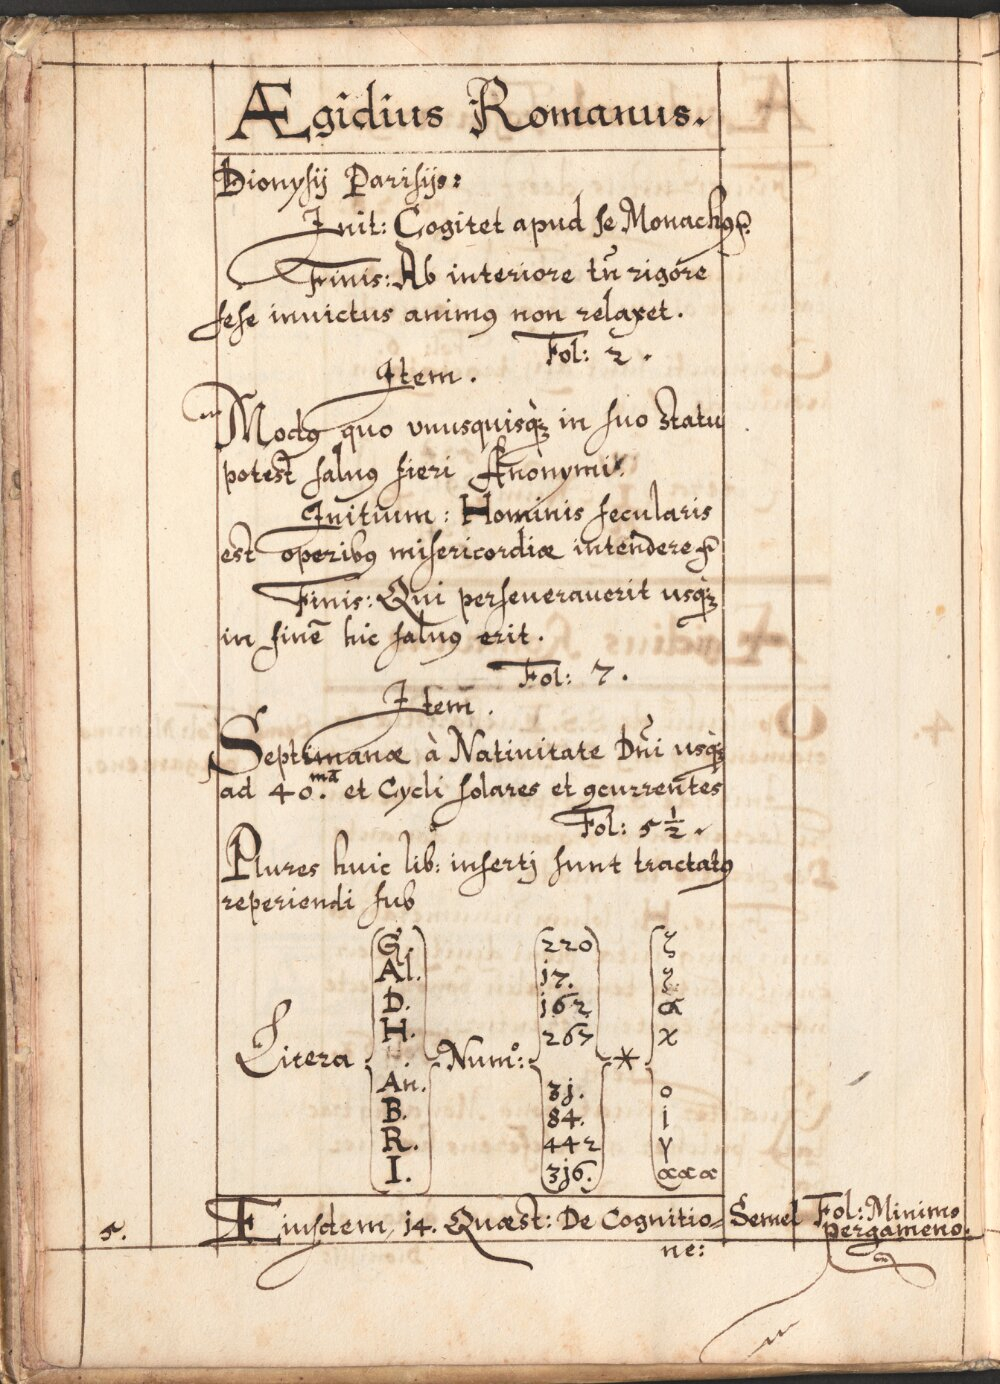 Ægidius Romanus.
Dionysij Parisijs:
Init: Cogitet apud se Monachꝰ
Finis: Ab interiore tñ rigore
sese inuictus animꝰ non relaxet.
Fol: 2.
Item.
Modꝰ quo vnusquisq̀ꝫ in suo statu
potest saluꝰ fieri Anonymi.
Initium: Hominis secularis
est operibꝰ misericordiæ intendere
Finis: Qui perseuerauerit usq̀ꝫ
in finē hic saluꝰ erit.
Fol: 7.
Item.
Septimanæ à Natiuitate Dñi usq̀ꝫ
ad 40.mã et Cycli solares et ꝯcurrentes
Fol: 5 1/2.
Plures huic lib: insertj sunt tractatꝰ
reperiendi sub
G. 220 ζ
Al. 17. z.
D. 162 α
H. 267 x
Litera Numº: *
An. 3j. o
B. 84. i
R. 442 γ
I. 3j6. ααα
5. Eiusdem 14. Quæst: De Cognitio= Semel Fol: Minimo
ne: pergameno.